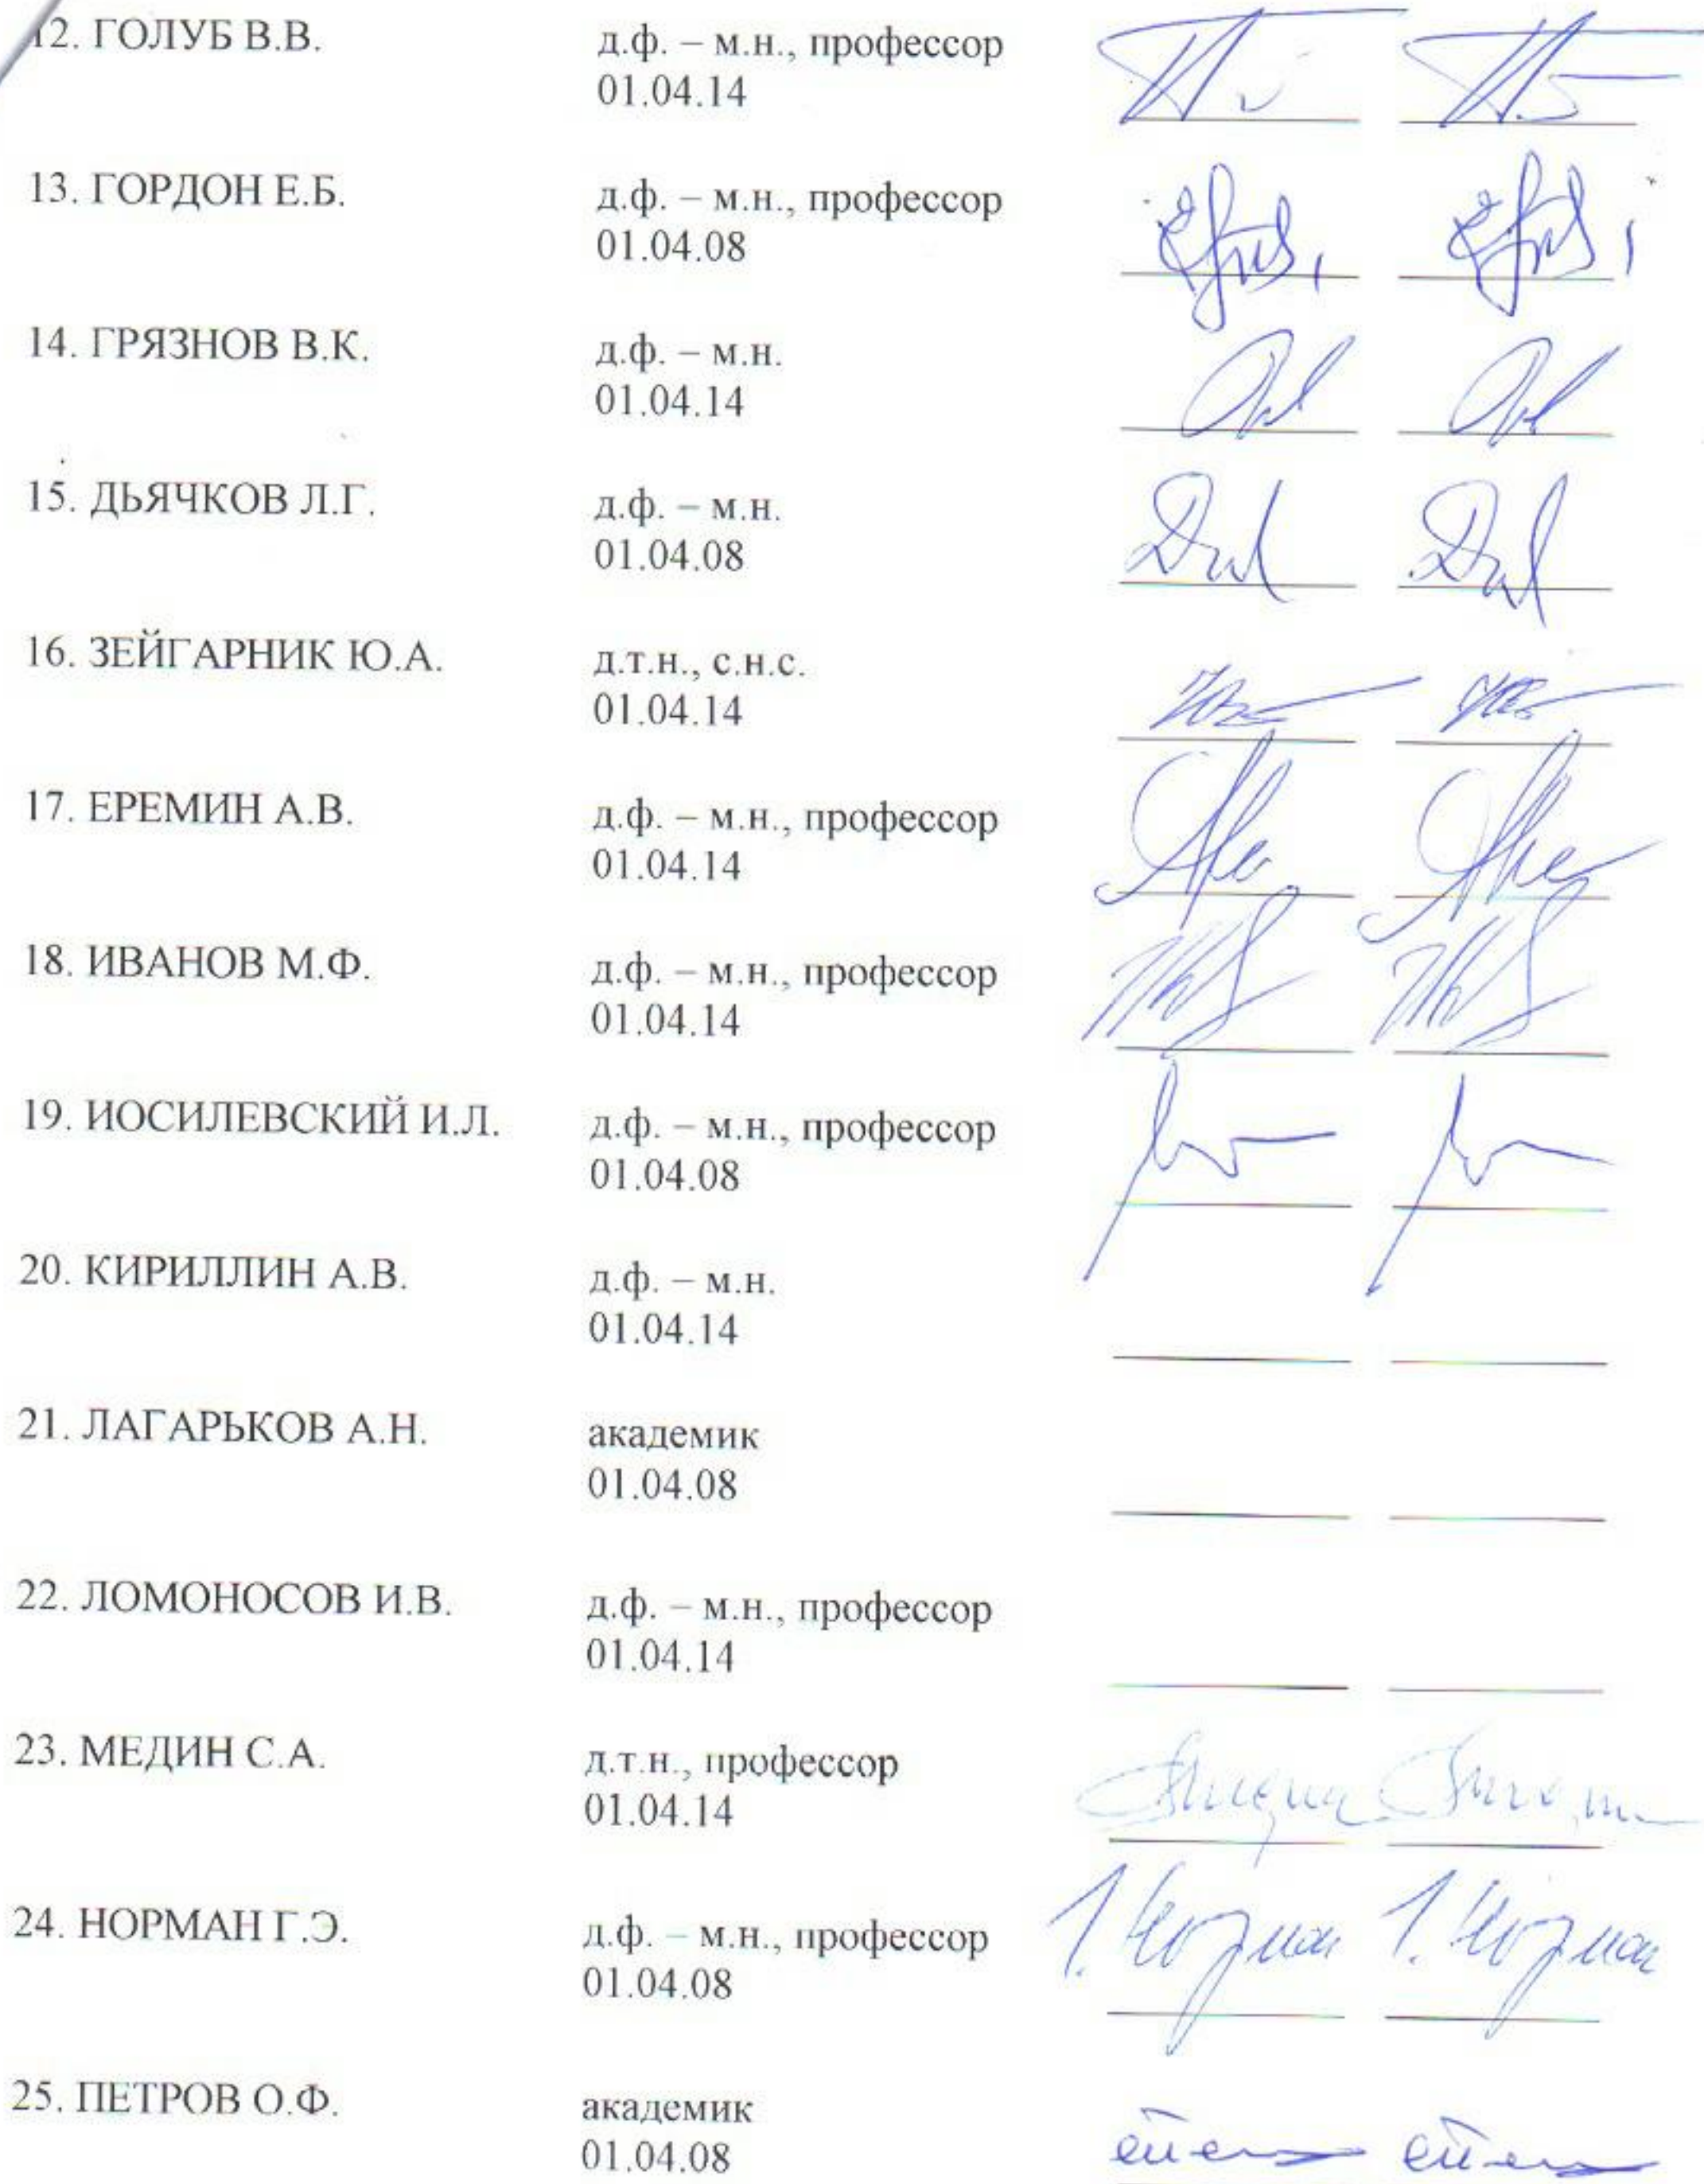 12. ГОЛУБ В.В. д.ф. – м.н., профессор
01.04.14
13. ГОРДОН Е.Б. д.ф. – м.н., профессор
01.04.08
14. ГРЯЗНОВ В.К. д.ф. – м.н.
01.04.14
15. ДЬЯЧКОВ Л.Г. д.ф. – м.н.
01.04.08
16. ЗЕЙГАРНИК Ю.А. д.т.н., с.н.с.
01.04.14
17. ЕРЕМИН А.В. д.ф. – м.н., профессор
01.04.14
18. ИВАНОВ М.Ф. д.ф. – м.н., профессор
01.04.14
19. ИОСИЛЕВСКИЙ И.Л. д.ф. – м.н., профессор
01.04.08
20. КИРИЛЛИН А.В. д.ф. – м.н.
01.04.14
21. ЛАГАРЬКОВ А.Н. академик
01.04.08
22. ЛОМОНОСОВ И.В. д.ф. – м.н., профессор
01.04.14
23. МЕДИН С.А. д.т.н., профессор
01.04.14
24. НОРМАН Г.Э. д.ф. – м.н., профессор
01.04.08
25. ПЕТРОВ О.Ф. академик
01.04.08